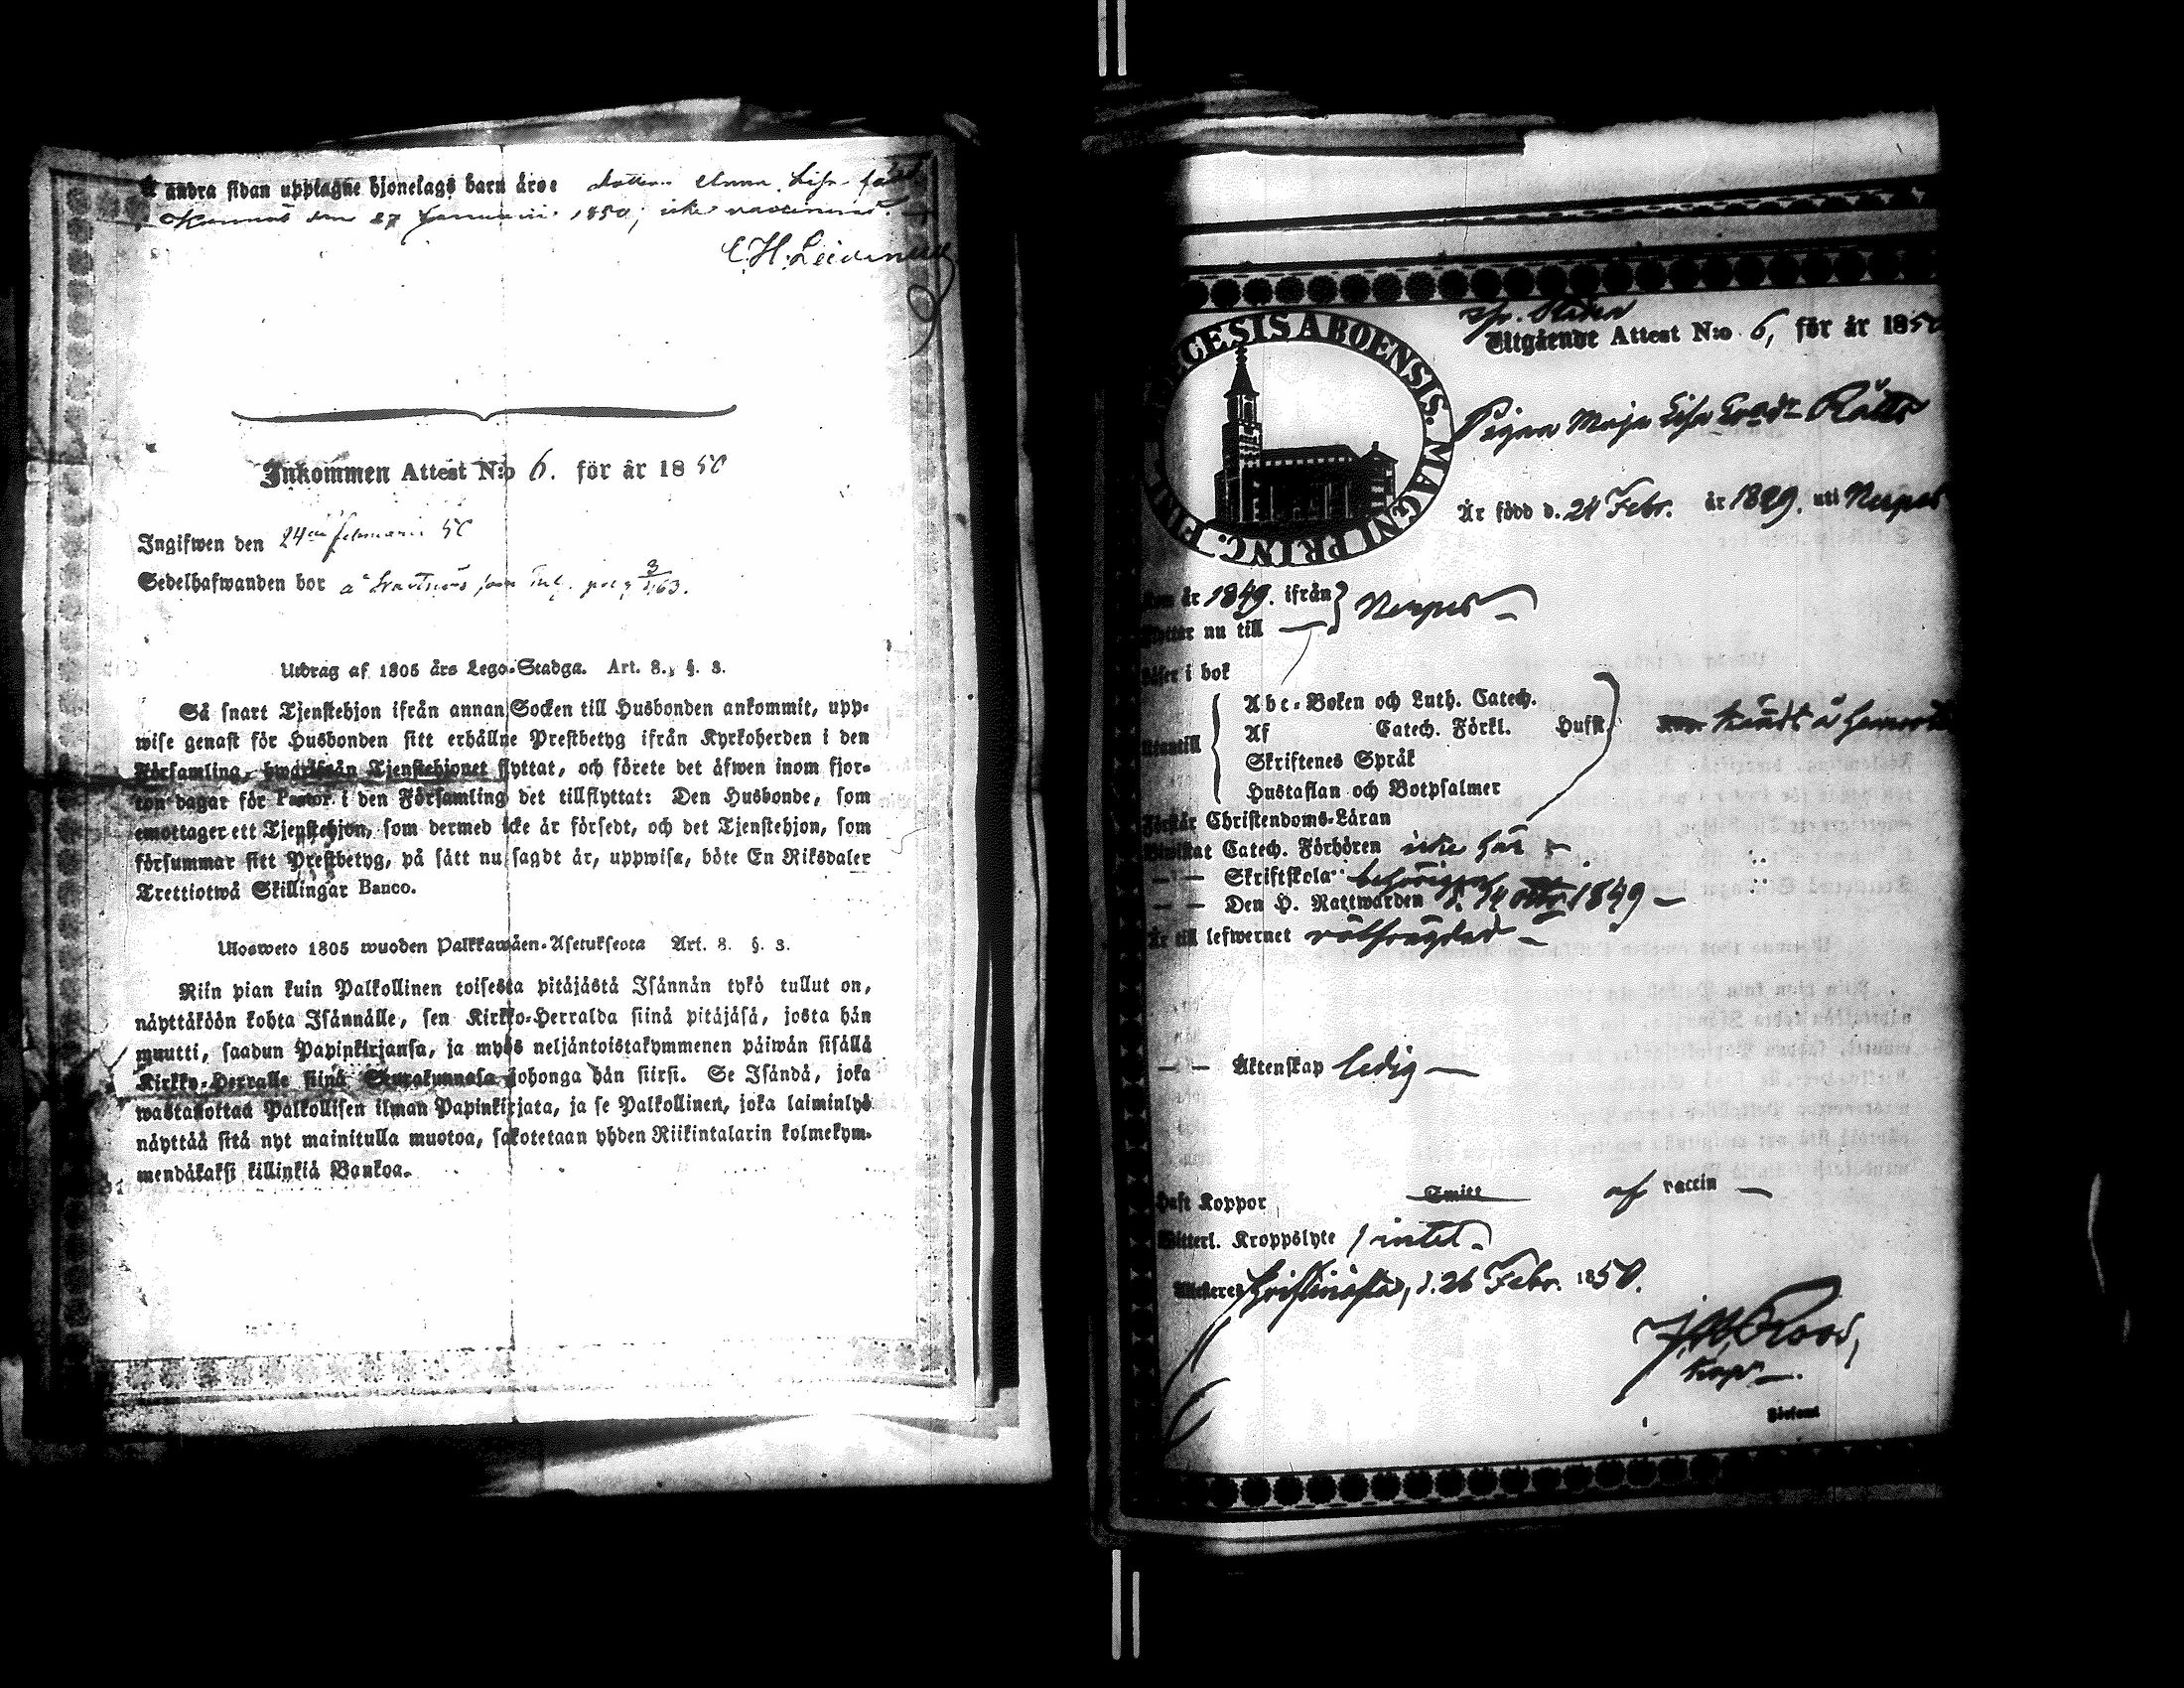 Å andra sidan upptagne hjonelags barn äro: dottern Anna Lisa född
Kannus den 27 Januarii 1850, icke vaccinerad.
Inkommen Attest N:o 6. för år 1850
Ingifwen den 24de februarii 50
Sedelhafwanden bor å
Utdrag af 1805 års Lego-Stadga. Art. 8., §. 3.
Så snart Tjenstehjon ifrån annan Socken till Husbonden ankommit, upp-
wise genast för Husbonden sitt erhållne Prestbetyg ifrån Kyrkoherden i den
Församling, hwarifrån Tjenstehjonet flyttat, och förete det äfwen inom fjor-
ton dagar för Pastor i den Församling det tillflyttat: Den Husbonde, som
emottager ett Tjenstehjon, som dermed icke är försedt, och det Tjenstehjon, som
försummar sitt Prestbetyg, på sätt nu sagdt är, uppwisa, böte En Riksdaler
Trettiotwå Skillingar Banco.
Ulosweto 1805 wuoden Palkkawäen-Asetuksesta Art. 8. §. 3.
Niin pian kuin Palkollinen toisesta pitäjästä Isännän tykö tullut on,
näyttäköön kohta Isännälle, sen Kirkko-Herralda siinä pitäjäsä, josta hän
muutti, saadun Papinkirjansa, ja myös neljäntoistakymmenen päiwän sisällä
Kirkko-Herralle siinä Seurakunnasa johonga hän siirsi. Se Isändä, joka
wastanottaa Palkollisen ilman Papinkirjata, ja se Palkollinen, joka laiminlyö
näyttää sitä nyt mainitulla muotoa, sakotetaan yhden Riikintalarin kolmekym-
mendäkaksi killinkiä Bankoa.
DIOECESIS ABOENSIS. MAGNI PRINC. FINL.
Utgående Attest N:o 6, för år 1850
Pigan Maja Lisa Rätts
Är född d. 24 Febr. år 1829. uti Nerpes
Kom år 1849. ifrån
Flyttar nu till } Nerpes
Läser i bok
Abc-Boken och Luth. Catech.
Utantill { Af Catech. Förkl. Husfl. kändt å hemorten
Skriftenes Språk
Hustaflan och Botpsalmer
Förstår Christendoms-Läran
Biwistat Catech. Förhören icke här
— — Skriftskola behörigen
— — Den H. Nattwarden d. 14 Oktr 1849
Är till lefwernet välfrägdad
— — Äktenskap ledig
Haft Koppor Smitt af vaccin
Witterl. Kroppslyte intet
Attesteres Christinæstad, d. 26 Febr. 1850.
Församl